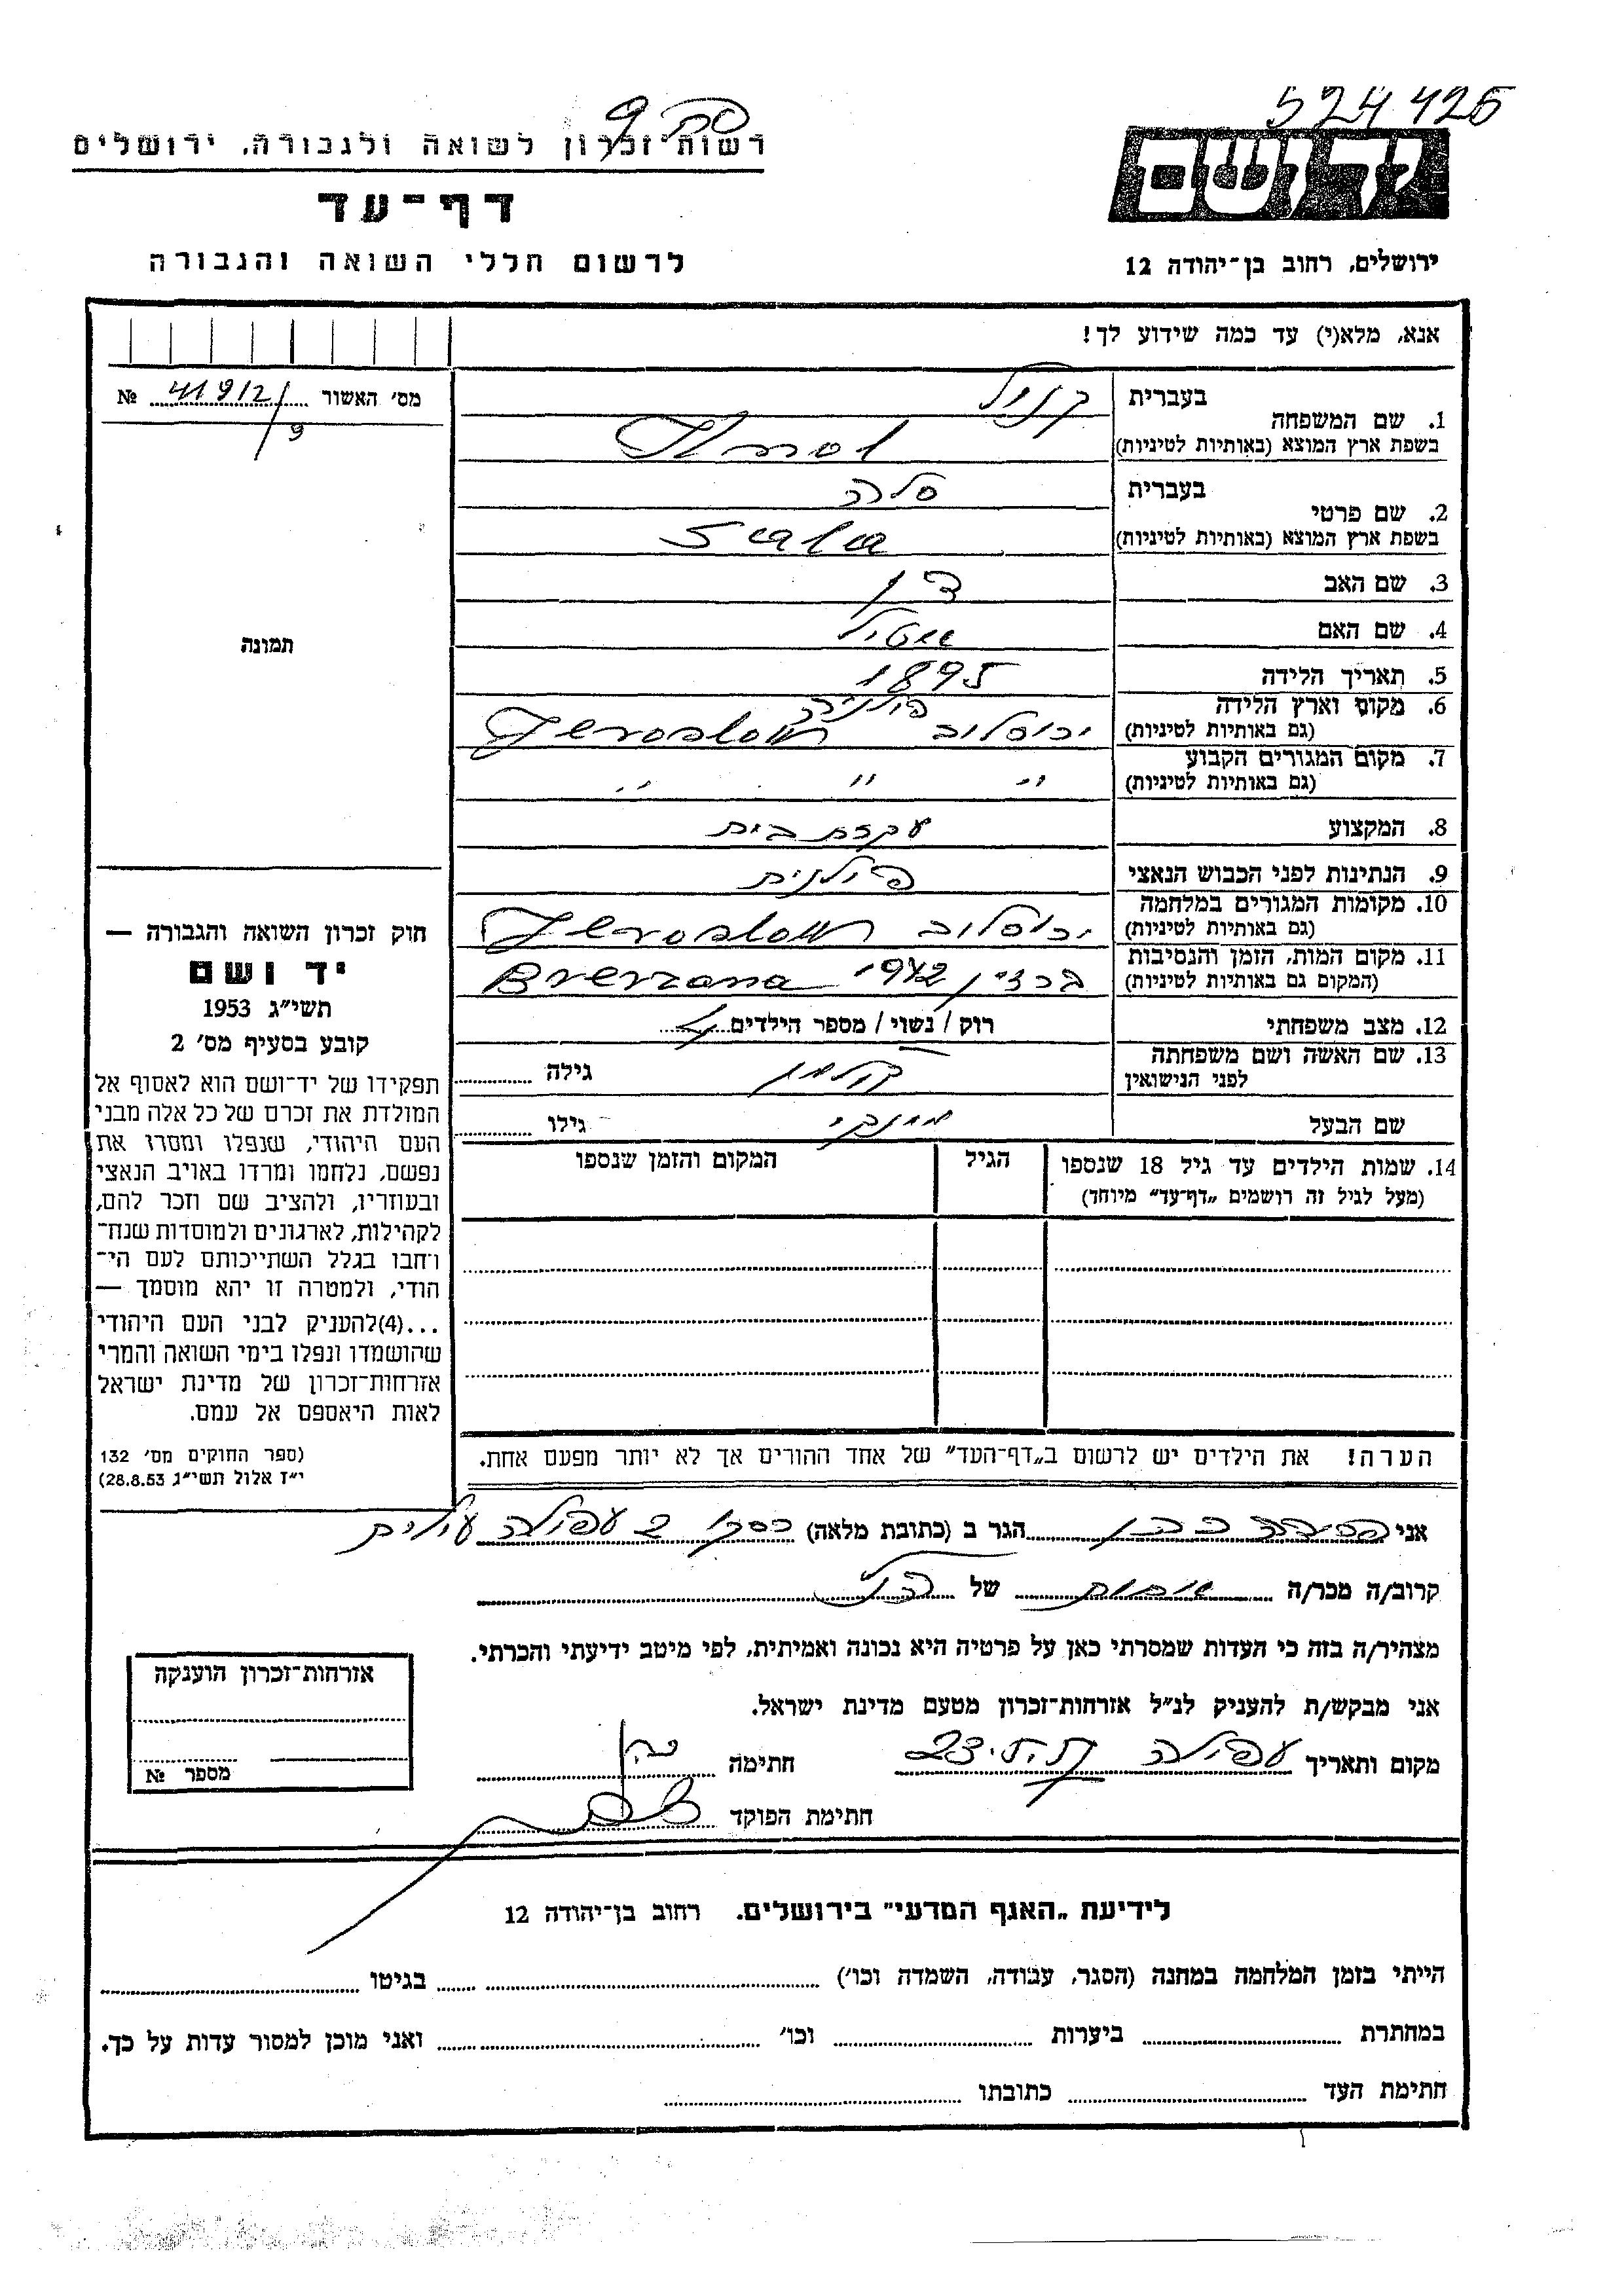 524426
רשות־זכרון לשואה ולגבורה, ירושלים
דף־עד
לרשום חללי השואה והגבורה
ירושלים, רחוב בן־יהודה 12
אנא, מלא(י) עד כמה שידוע לך!
מס׳ האשור 41912/9 №
בעברית
1. שם המשפחה
בשפת ארץ המוצא (באותיות לטיניות)
בעברית סלה
2. שם פרטי
בשפת ארץ המוצא (באותיות לטיניות) Scala
3. שם האב
4. שם האם
תמונה
5. תאריך הלידה 1895
6. מקום וארץ הלידה פולניה
(גם באותיות לטיניות) ירוסלוב Jeroslow
7. מקום המגורים הקבוע
(גם באותיות לטיניות) " " "
8. המקצוע עקרת בית
9. הנתינות לפני הכבוש הנאצי פולנית
10. מקומות המגורים במלחמה
(גם באותיות לטיניות) ירוסלוב Jeroslow
11. מקום המות, הזמן והנסיבות
(המקום גם באותיות לטיניות) 1942
12. מצב משפחתי רוק / נשוי / מספר הילדים
13. שם האשה ושם משפחתה
לפני הנישואין גילה
שם הבעל גילו
14. שמות הילדים עד גיל 18 שנספו הגיל המקום והזמן שנספו
(מעל לגיל זה רושמים „דף־עד” מיוחד)
הערה! את הילדים יש לרשום ב„דף־העד” של אחד ההורים אך לא יותר מפעם אחת.
חוק זכרון השואה והגבורה —
יד ושם
תשי״ג 1953
קובע בסעיף מס׳ 2
תפקידו של יד־ושם הוא לאסוף אל
המולדת את זכרם של כל אלה מבני
העם היהודי, שנפלו ומסרו את
נפשם, נלחמו ומרדו באויב הנאצי
ובעוזריו, ולהציב שם וזכר להם,
לקהילות, לארגונים ולמוסדות שנח־
רבו בגלל השתייכותם לעם הי־
הודי, ולמטרה זו יהא מוסמך —
...(4)להעניק לבני העם היהודי
שהושמדו ונפלו בימי השואה והמרי
אזרחות־זכרון של מדינת ישראל
לאות היאספם אל עמם.
(ספר החוקים מס׳ 132
י״ז אלול תשי״ג 28.8.53)
אני הגר ב (כתובת מלאה) עפולה עילית
קרוב/ה מכר/ה של
מצהיר/ה בזה כי העדות שמסרתי כאן על פרטיה היא נכונה ואמיתית, לפי מיטב ידיעתי והכרתי.
אני מבקש/ת להעניק לנ״ל אזרחות־זכרון מטעם מדינת ישראל.
מקום ותאריך עפולה חתימה
חתימת הפוקד
אזרחות־זכרון הוענקה
מספר №
לידיעת „האגף המדעי” בירושלים. רחוב בן־יהודה 12
הייתי בזמן המלחמה במחנה (הסגר, עבודה, השמדה וכו׳) בגיטו
במחתרת ביערות וכו׳ ואני מוכן למסור עדות על כך.
חתימת העד כתובתו